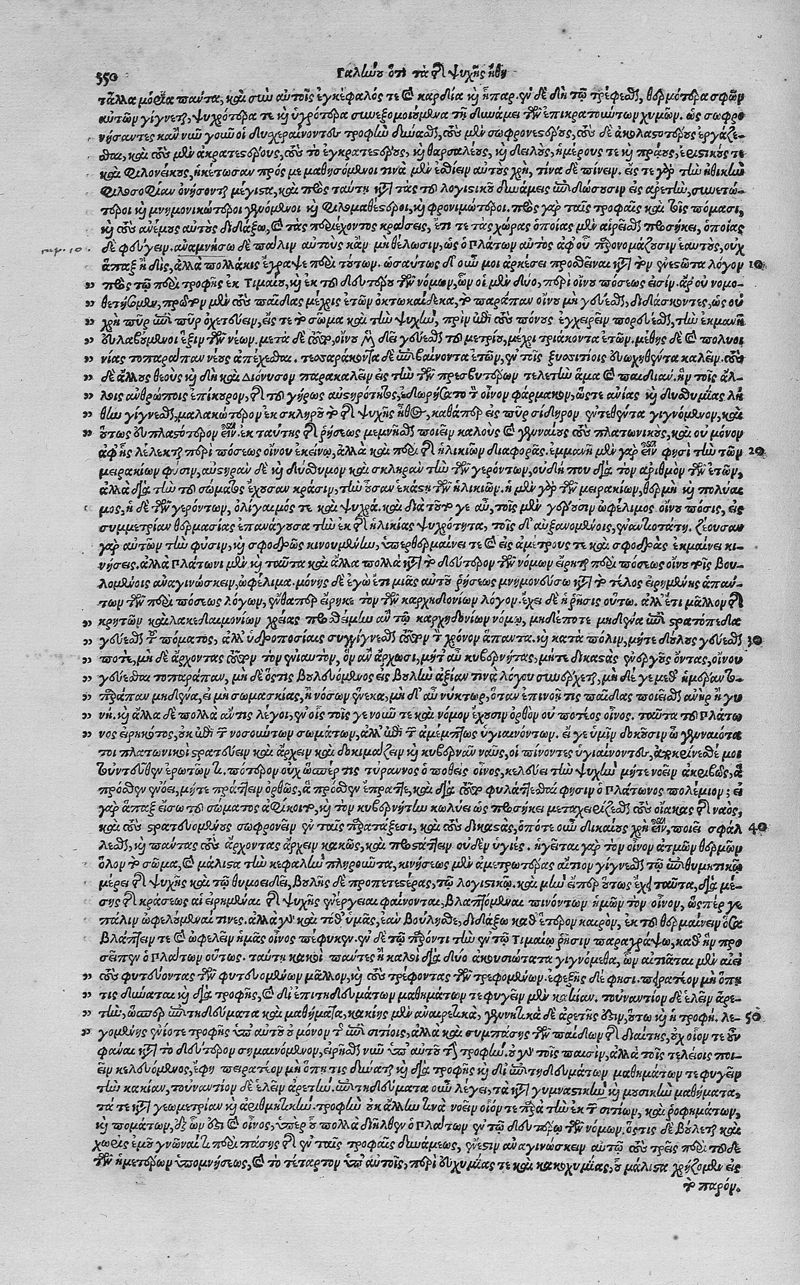 350 Γαλίωοῦ ὅτι τὰ τῆς ψυχῆς ἤθη
τἄλλα μόρια πάντα, καὶ σὺν αὐτοῖς ἐγκέφαλός τε καὶ καρδία καὶ ἧπαρ. ἐν δὲ δὴ τῷ τρέφεσθαι, θερμότερα σφῶν
αὐτῶν γίγνεται, ψυχρότερά τε καὶ ὑγρότερα συνεξομοιούμενα τῇ δυνάμει τῶν ἐπικρατούντων χυμῶν. ὡς σωφρο
νήσαντες κἂν νῦν γοῦν οἱ δυσχεραίνοντες τροφὴν δύνασθαι, τοὺς μὲν σωφρονεστέρους, τοὺς δὲ ἀκολαστοτέρους ἐργάζε-
σθαι, καὶ τοὺς μὲν ἀκρατεστέρους, τοὺς δὲ ἐγκρατεστέρους, καὶ θαρσαλέους, καὶ δειλοὺς, ἡμέρους τε καὶ πράους, ἐριστικούς τε
καὶ φιλονείκους, ἡκέτωσαν πρός με μαθησόμενοι τίνα μὲν ἐσθίειν αὐτοὺς χρὴ, τίνα δὲ πίνειν. εἴς τε γὰρ τὴν ἠθικὴν
φιλοσοφίαν ὀνήσονται μέγιστα, καὶ πρὸς ταύτῃ κατὰ τὰς τοῦ λογιστικοῦ δυνάμεις ἐπιδώσουσιν εἰς ἀρετὴν, συνετώ-
τεροι καὶ μνημονικώτεροι γενόμενοι καὶ φιλομαθέστεροι, καὶ φρονιμώτεροι. πρὸς γὰρ ταῖς τροφαῖς καὶ τοῖς πόμασι,
καὶ τοὺς ἀνέμους αὐτοὺς διδάξω, καὶ τὰς τοῦ περιέχοντος κράσεις, ἔτι τε τὰς χώρας ὁποίας μὲν αἱρεῖσθαι προσήκει, ὁποίας
δὲ φεύγειν. ἀναμνήσω δὲ πάλιν αὐτοὺς κἂν μὴ θέλωσιν, ὡς ὁ Πλάτων αὐτὸς ἀφ' οὗ παρονομάζουσιν ἑαυτοὺς, οὐχ
ἅπαξ ἢ δὶς, ἀλλὰ πολλάκις ἔγραψε περὶ τούτων. ὡσαύτως δ' οὖν μοι ἀρκέσει προσθεῖναι κατὰ τὸν ἐνεστῶτα λόγον 10
πρὸς τῷ περὶ τροφῆς ἐκ Τιμαίου, καὶ ἐκ τοῦ δευτέρου τῶν νόμων, ὧν οἱ μὲν δύο, περὶ οἴνου πόσεώς εἰσιν. ἆρ' οὐ νομο-
θετήσομεν, πρῶτον μὲν τοὺς παῖδας μέχρις ἐτῶν ὀκτωκαίδεκα, τὸ παράπαν οἴνου μὴ γεύεσθαι, διδάσκοντες, ὡς οὐ
χρὴ πῦρ ἐπὶ πῦρ ὀχετεύειν, εἴς τε τὸ σῶμα καὶ τὴν ψυχὴν, πρὶν ἐπὶ τοὺς πόνους ἐγχειρεῖν πορεύεσθαι, τὴν ἐκμανῆ
εὐλαβούμενοι ἕξιν τῶν νέων. μετὰ δὲ τοῦτο, οἴνου μὲν δὴ γεύεσθαι τοῦ μετρίου, μέχρι τριάκοντα ἐτῶν. μέθης δὲ καὶ πολυοι
νίας τοπαράπαν νέος ἀπέχεσθαι. τεσσαράκοντα δὲ ἐπιβαίνοντα ἐτῶν, ἐν τοῖς ξυσσιτίοις εὐωχηθέντα καλεῖν. τοὺς
δὲ ἄλλους θεοὺς καὶ δὴ καὶ Διόνυσον παρακαλεῖν εἰς τὴν τῶν πρεσβυτέρων τελετὴν ἅμα καὶ παιδιάν. ἣν τοῖς ἄλ-
λοις ἀνθρώποις ἐπίκουρον, τῆς τοῦ γήρως αὐστηρότητος, ἐδωρήσατο τὸν οἶνον φάρμακον, ὥστε ἀνίας καὶ δυσθυμίας λή
θην γίγνεσθαι, μαλακώτερον ἐκ σκληροῦ τὸ τῆς ψυχῆς ἦθος, καθάπερ εἰς πῦρ σίδηρον ἐντεθέντα γιγνόμενον, καὶ
οὕτως εὐπλαστότερον εἶναι. ἐκ ταύτης τῆς ῥήσεως μεμνῆσθαι ποιεῖν καλοὺς καὶ γενναίους τοὺς πλατωνικοὺς, καὶ οὐ μόνον
ἀφ' ἧς λέλεκται περὶ πόσεως οἴνου ἐκείνῳ, ἀλλὰ καὶ περὶ τῆς ἡλικιῶν διαφορᾶς. ἐμμανῆ μὲν γὰρ εἶναί φησι τὴν τῶν 20
μειρακίων φύσιν, αὐστηρὰν δὲ καὶ δύσθυμον καὶ σκληρὰν τὴν τῶν γερόντων, οὐ δή που διὰ τὸν ἀριθμὸν τῶν ἐτῶν,
ἀλλὰ διὰ τὴν τοῦ σώματος ἔχουσαν κρᾶσιν, τὴν οὖσαν ἑκάστῃ τῶν ἡλικιῶν. ἡ μὲν γὰρ τῶν μειρακίων, θερμὴ καὶ πολύαι
μος, ἡ δὲ τῶν γερόντων, ὀλίγαιμός τε καὶ ψυχρά. καὶ διὰ τοῦτό γε αὖ, τοῖς μὲν γέρουσιν ὠφέλιμος οἴνου πόσις, εἰς
συμμετρίαν θερμασίας ἐπανάγουσα τὴν ἐκ τῆς ἡλικίας ψυχρότητα, τοῖς δ' αὐξανομένοις, ἐναντιωτάτη. ζέουσαν
γὰρ αὐτῶν τὴν φύσιν, καὶ σφοδρῶς κινουμένην, ὑπερθερμαίνει τε καὶ εἰς ἀμέτρους τε καὶ σφοδρὰς ἐκμαίνει κι-
νήσεις. ἀλλὰ Πλάτωνι μὲν καὶ ταῦτα καὶ ἄλλα πολλὰ κατὰ τὸ δεύτερον τῶν νόμων εἴρηται περὶ πόσεως οἴνου τοῖς βου-
λομένοις ἀναγινώσκειν, ὠφέλιμα. μόνης δὲ ἐγὼ ἔτι μιᾶς αὐτοῦ ῥήσεως μνημονεύσω κατὰ τὸ τέλος εἰρημένης ἁπάν-
των τῶν περὶ πόσεως λόγων, ἔνθαπερ εἴρηκε τὸν τῶν καρχηδονίων λόγον. ἔχει δὲ ἡ ῥῆσις οὕτω. ἀλλ' ἔτι μᾶλλον τῆς
κρητῶν καὶ λακεδαιμονίων χρείας προσθείμην ἂν τῷ καρχηδονίων νόμῳ, μηδέποτε μηδένα ἐπὶ στρατοπέδου
γεύεσθαι τοῦ πόματος, ἀλλ' ὑδροποσίαις συγγίγνεσθαι τοῦτον τὸν χρόνον ἅπαντα. καὶ κατὰ πόλιν, μήτε δούλους γεύεσθαι 30
ποτὲ, μὴ δὲ ἄρχοντας τοῦτον τὸν ἐνιαυτὸν, ὃν ἂν ἄρχωσι, μήτ' αὖ κυβερνήτας, μήτε δικαστὰς ἐνεργοὺς ὄντας, οἴνου
γεύεσθαι τοπαράπαν, μὴ δὲ ὅστις βουλευσόμενος εἰς βουλὴν ἀξίαν τινὰ λόγου συνέρχεται, μὴ δέ γε μεθ' ἡμέραν το-
παράπαν μηδένα, εἰ μὴ σωμασκίας, ἢ νόσων ἕνεκα, μὴ δ' αὖ νύκτωρ, ὅταν ἐπινοῇ τις παῖδας ποιεῖσθαι ἀνὴρ ἢ γυ
νή. καὶ ἄλλα δὲ πολλὰ ἄν τις λέγοι, ἐν οἷς τοῖς γε νοῦν τε καὶ νόμον ἔχουσιν ὀρθὸν οὐ ποτέος οἶνος. ταῦτα τοῦ Πλάτω
νος εἰρηκότος, οὐκ ἐπὶ τῶν νοσούντων σωμάτων, ἀλλ' ἐπὶ τῶν ἀμέμπτως ὑγιαινόντων. εἴ γε ὑμῖν δοκοῦσιν ὦ γενναιότα
τοι πλατωνικοὶ στρατεύειν καὶ ἄρχειν καὶ δοκιμάζειν καὶ κυβερνᾶν ναῦς, οἱ πίνοντες ὑγιαίνοντες, ἀποκρίνεσθέ μοι
τοὐντεῦθεν ἐρωτῶντι. πότερον οὐχ ὥσπερ τις τύραννος ὁ ποθεὶς οἶνος, κελεύει τὴν ψυχὴν μήτε νοεῖν ἀκριβῶς, ἃ
πρόσθεν ἐνόει, μήτε πράττειν ὀρθῶς, ἃ πρόσθεν ἔπραττε, καὶ διὰ τοῦτο φυλάττεσθαι φησιν ὁ Πλάτων ὡς πολέμιον; εἰ
γὰρ ἅπαξ εἴσω τοῦ σώματος ἀφίκοιτο, καὶ τὸν κυβερνήτην κωλύει ὡς προσήκει μεταχειρίζεσθαι τοὺς οἴακας τῆς ναὸς,
καὶ τοὺς στρατευομένους σωφρονεῖν ἐν ταῖς παρατάξεσι, καὶ τοὺς δικαστὰς, ὁπότε οὖν δικαίους χρὴ εἶναι, ποιεῖ σφάλ 40
λεσθαι, καὶ πάντας τοὺς ἄρχοντας ἄρχειν κακῶς, καὶ προστάττειν οὐδὲν ὑγιές. ἡγεῖται γὰρ τὸν οἶνον ἀτμῶν θερμῶν
ὅλον τὸ σῶμα, καὶ μάλιστα τὴν κεφαλὴν πληροῦντα, κινήσεως μὲν ἀμετρωτέρας αἴτιον γίγνεσθαι τῷ ἐπιθυμητικῷ
μέρει τῆς ψυχῆς καὶ τῷ θυμοειδεῖ, βουλῆς δὲ προπετεστέρας, τῷ λογιστικῷ. καὶ μὴν εἴπερ οὕτως ἔχει ταῦτα, διὰ μέ-
σης τῆς κράσεως αἱ εἰρημέναι τῆς ψυχῆς ἐνέργειαι φαίνονται, βλαπτόμεναι πινόντων ἡμῶν τὸν οἶνον, ὥσπερ γε
πάλιν ὠφελούμεναί τινες. ἀλλὰ γὰρ καὶ τοῦθ' ὑμᾶς, ἐὰν βούλησθε, διδάξω καθ' ἕτερον καιρὸν, ἐκ τοῦ θερμαίνειν ὅσα
βλάπτειν τε καὶ ὠφελεῖν ἡμᾶς οἶνος πέφυκεν. ἐν δὲ τῷ παρόντι τὴν ἐν τῷ Τιμαίῳ ῥῆσιν παραγράψω, καθ' ἣν προ
σεῖπεν ὁ Πλάτων οὕτως. ταύτῃ κακοὶ πάντες οἱ κακοὶ διὰ δύο ἀκουσιώτατα γιγνόμεθα, ὧν αἰτιᾶται μὲν ἀεὶ
τοὺς φυτεύοντας τῶν φυτευομένων μᾶλλον, καὶ τοὺς τρέφοντας τῶν τρεφομένων. ἐφεξῆς δέ φησι. πειρατέον μὴν ὅπῃ
τις δύναται καὶ διὰ τροφῆς, καὶ δι' ἐπιτηδευμάτων μαθημάτων τε φυγεῖν μὲν κακίαν. τοὐναντίον δὲ ἑλεῖν ἀρε-
τὴν, ὥσπερ ἐπιτηδεύματα καὶ μαθήματα, κακίης μὲν ἀναιρετικὰ, γεννητικὰ δὲ ἀρετῆς ἐστιν, οὕτω καὶ ἡ τροφή. λε- 50
γομένης ἐνίοτε τροφῆς ὑπ' αὐτοῦ οὐ μόνον τῆς ἐπὶ σιτίοις, ἀλλὰ καὶ συμπάσης τῶν παίδων τῆς διαίτης, οὐχ οἷόν τε ἓν
φάναι κατὰ τὸ δεύτερον σημαινόμενον, εἰρῆσθαι νῦν ὑπ' αὐτοῦ τὴν τροφήν. οὐ γὰρ τοῖς παισὶν, ἀλλὰ τοῖς τελείοις ποι-
εῖν κελευόμενος, ἔφη πειρατέον μὴν ὅπῃ τις δύναται καὶ διὰ τροφῆς καὶ δι' ἐπιτηδευμάτων μαθημάτων τε φυγεῖν
τὴν κακίαν, τοὐναντίον δὲ ἑλεῖν ἀρετήν. ἐπιτηδεύματα οὖν λέγει, τὰ κατὰ γυμναστικὴν καὶ μουσικὴν μαθήματα,
τά τε κατὰ γεωμετρίαν καὶ ἀριθμητικήν. τροφὴν οὐκ ἄλλην τινὰ νοεῖν οἷόν τε παρὰ τὴν ἐκ τῶν σιτίων, καὶ ῥοφημάτων,
καὶ πομάτων, ἐξ ὧν ἐστι καὶ οἶνος, ὑπὲρ οὗ πολλὰ διῆλθεν ὁ Πλάτων ἐν τῷ δευτέρῳ τῶν νόμων, ὅστις δὲ βούλεται καὶ
χωρὶς ἐμοῦ γνῶναι τὰ περὶ πάσης τῆς ἐν ταῖς τροφαῖς δυνάμεως, ἔνεστιν ἀναγινώσκειν αὐτῷ τοὺς τρεῖς περὶ τοῦδε
τῶν ἡμετέρων ὑπομνήσεως, καὶ τὸ τέταρτον ἐπ' αὐτοῖς, περὶ εὐχυμίας τε καὶ κακοχυμίας, οὗ μάλιστα χρῄζομεν εἰς
τὸ παρόν.